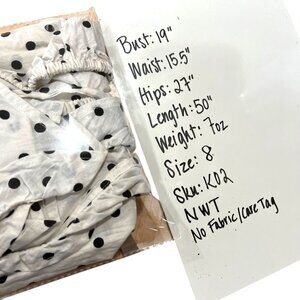 Bust: 19"
Waist: 15.5"
Hips: 27"
Length: 50"
Weight: 7oz
Size: 8
Sku: K02
NWT
No Fabric/Care Tag